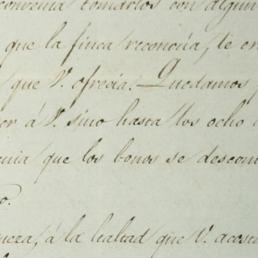 convenia tomarlos con algun
que la finca reconocia, te en
que V. ofrecia. Quedamos
or á V. sino hasta los ocho
uia que los bonos se descon
o.
neza, á la lealtad que V. acos